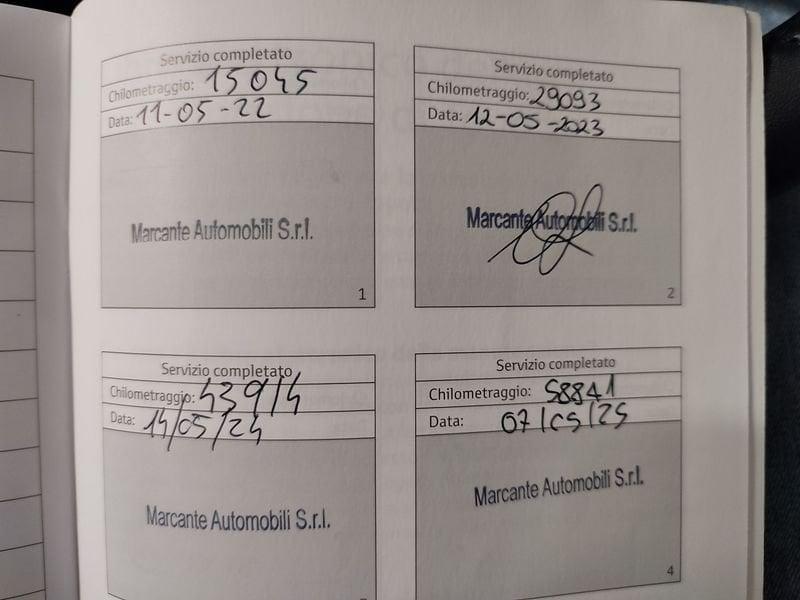 Servizio completato
Chilometraggio: 15045
Data: 11-05-22
Marcante Automobili S.r.l.
1
Servizio completato
Chilometraggio: 29093
Data: 12-05-2023
Marcante Automobili S.r.l.
2
Servizio completato
Chilometraggio: 43914
Data: 14/05/24
Marcante Automobili S.r.l.
Servizio completato
Chilometraggio: 58841
Data: 07/05/25
Marcante Automobili S.r.l.
4